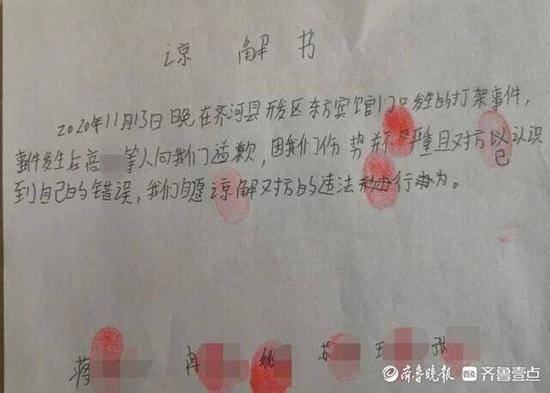 谅 解 书
2020年11月13日晚在齐河县开发区东方宾馆门口发生的打架事件，
事件发生后高 等人向我们道歉，因我们伤势并不严重且对方以认识
已
到自己的错误，我们自愿谅解对方的违法行为。
蒋 冉 姚 苏 王 张
齐鲁晚报 齐鲁壹点